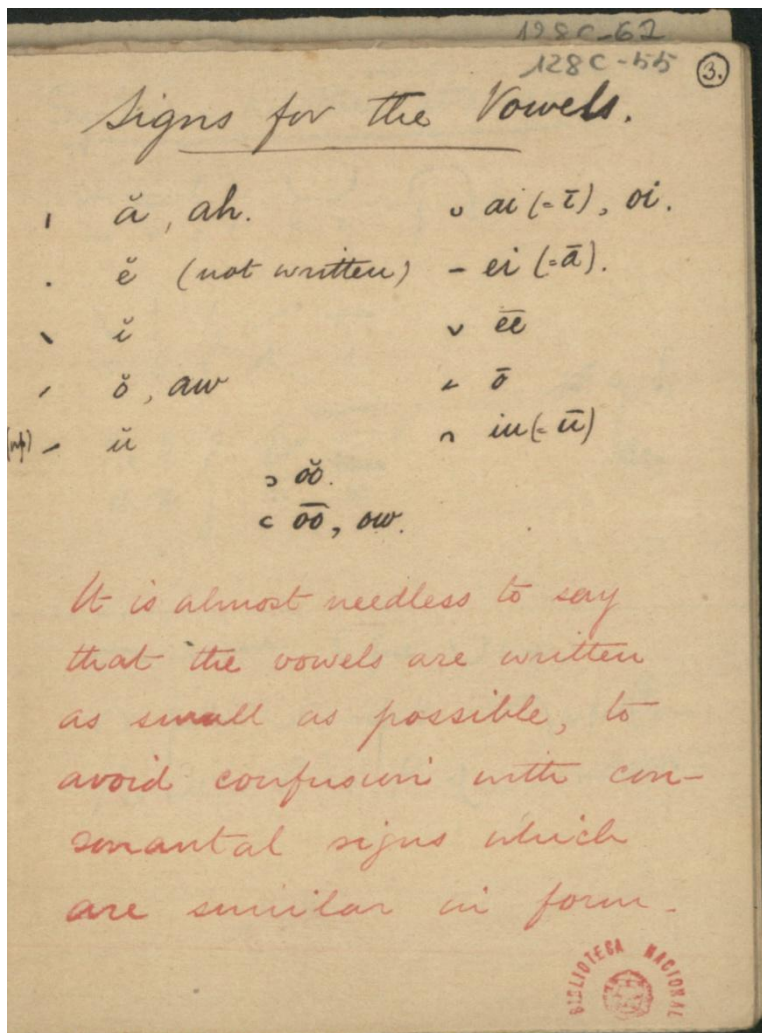 128C-62
128C-55
3.
Signs for the Vowels.
ı ă, ah.
. ĕ (not written)
ĭ
ŏ, aw
(up) ŭ
ai (=ī), oi.
– ei (=ā).
ēē
ō
iu (=ū)
ɔ ŏŏ.
c ōō, ow.
It is almost needless to say
that the vowels are written
as small as possible, to
avoid confusion with con-
sonantal signs which
are similar in form.
BIBLIOTECA NACIONAL